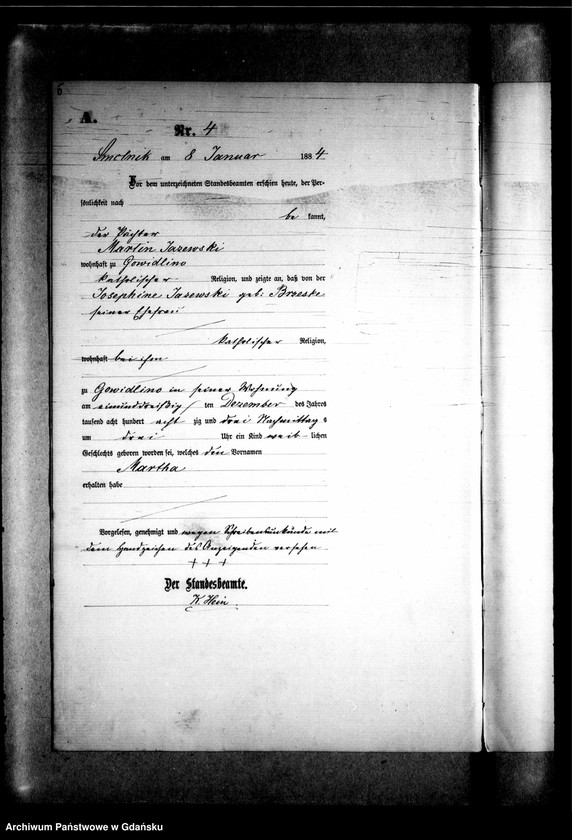 6
A.
Nr. 4
Smolnik am 8 Januar 1884
Vor dem unterzeichneten Standesbeamten erschien heute, der Per-
sönlichkeit nach
be kannt,
der Pächter
Martin Jazewski
wohnhaft zu Gowidlino
katholischer Religion, und zeigte an, daß von der
Josephine Jazewski geb: Broeske
seiner Ehefrau
katholischer Religion,
wohnhaft bei ihm
zu Gowidlino in seiner Wohnung
am einunddreißig ten Dezember des Jahres
tausend acht hundert acht zig und drei Nachmittag s
um drei Uhr ein Kind weib lichen
Geschlechts geboren worden sei, welches den Vornamen
Martha
erhalten habe
Vorgelesen, genehmigt und wegen Schreibensunkunde mit
dem Handzeichen des Anzeigenden versehen
+ + +
Der Standesbeamte.
K. Hein
Archiwum Państwowe w Gdańsku